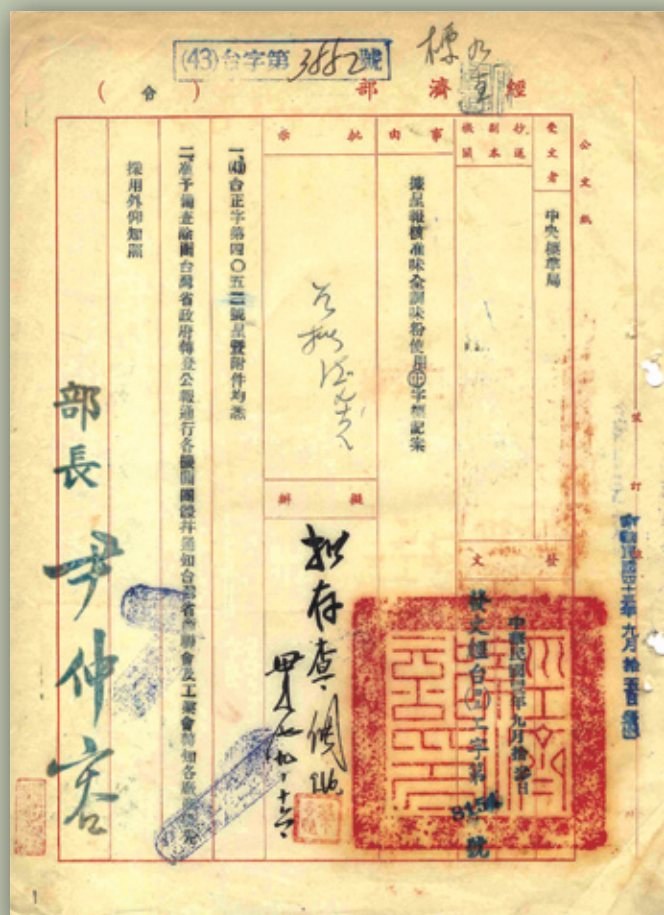 (43)台字第3552號
經濟部
(令)
公文紙
受文者
中央標準局
抄送副本機關
事由
據呈報核准味全調味粉使用㊣字標記案
批示
擬辦
擬存查
發文
中華民國年九月拾
發文經台工字第8154號
一、台正字第四〇五號呈暨附件均悉
二、准予備查除函台灣省政府轉登公報通行各機關團體并通知台灣省商聯會及工業會轉知各廠商優先
採用外仰知照
部長 尹仲容
訂
1